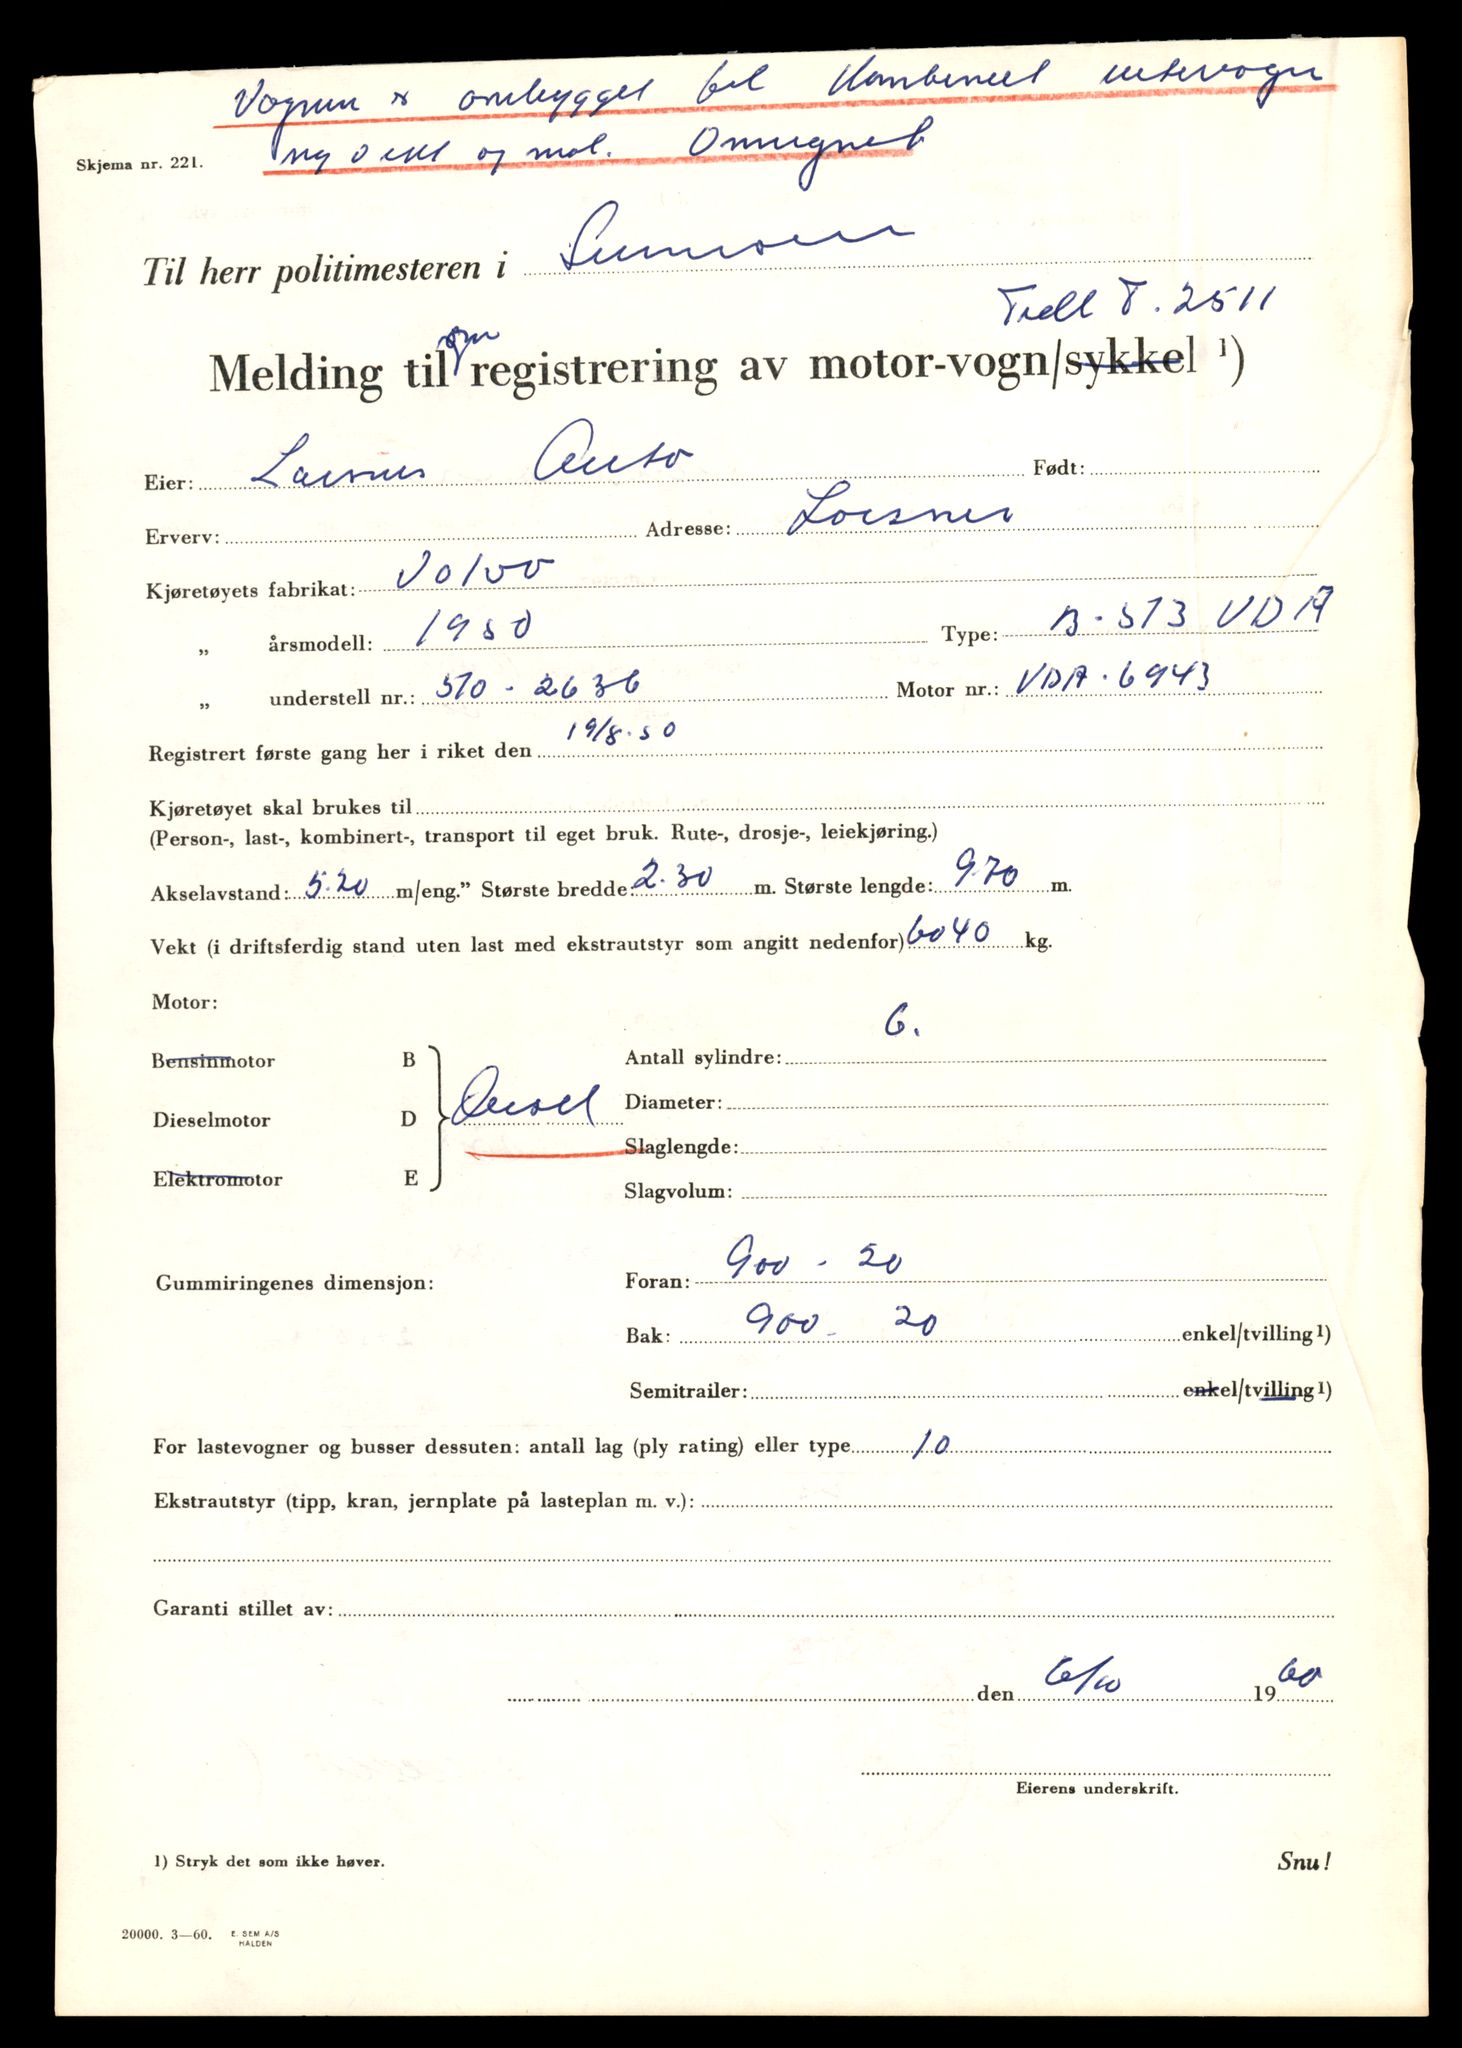 Vognen er ombygget til Kombinert rutevogn
ny vekt og mål. Omregnet
Skjema nr. 221.
Til herr politimesteren i Sunnmøre
Tidl T. 2511
Melding til om registrering av motor-vogn/sykkel ¹)
Eier: Auto Født:
Erverv: Adresse:
Kjøretøyets fabrikat: Volvo
„ årsmodell: 1950 Type: B-513 VDA
„ understell nr.: 510-2636 Motor nr.: VDA-6943
Registrert første gang her i riket den 19/8-50
Kjøretøyet skal brukes til
(Person-, last-, kombinert-, transport til eget bruk. Rute-, drosje-, leiekjøring.)
Akselavstand: 5.20 m/eng.” Største bredde: 2.30 m. Største lengde: 9.70 m.
Vekt (i driftsferdig stand uten last med ekstrautstyr som angitt nedenfor) 6040 kg.
Motor:
6.
Bensinmotor B Antall sylindre:
Dieselmotor D Diesel Diameter:
Slaglengde:
Elektromotor E
Slagvolum:
Gummiringenes dimensjon: Foran: 900-20
Bak: 900-20 enkel/tvilling¹)
Semitrailer: enkel/tvilling¹)
For lastevogner og busser dessuten: antall lag (ply rating) eller type 10
Ekstrautstyr (tipp, kran, jernplate på lasteplan m. v.):
Garanti stillet av:
den 6/10 1960
Eierens underskrift.
1) Stryk det som ikke høver.
Snu!
20000. 3—60. E. SEM A/S
HALDEN